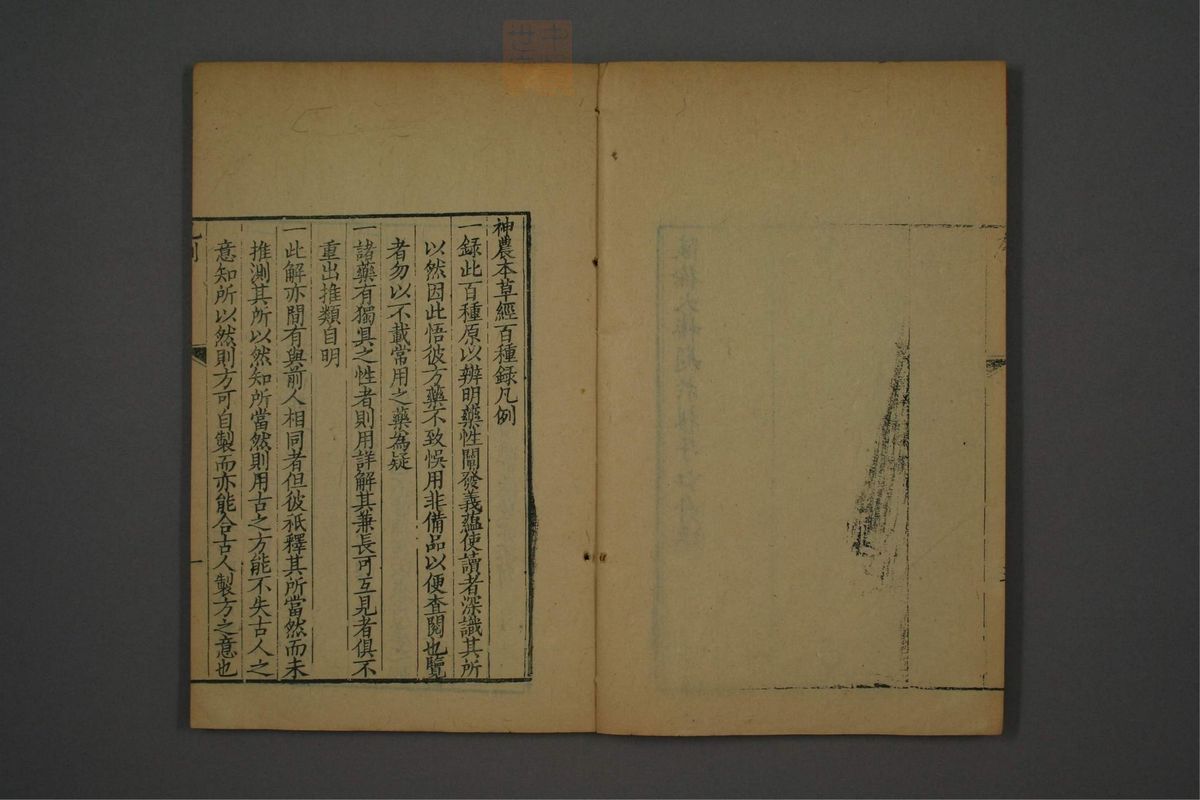 神農本草經百種録凡例
一録此百種原以辨明藥性闡發義蘊使讀者深識其所
以然因此悟彼方藥不致悞用非備品以便査閱也覽
者勿以不載常用之藥為疑
一諸藥有獨具之性者則用詳解其兼長可互見者俱不
重出推類自明
一此解亦間有與前人相同者但彼祇釋其所當然而未
推測其所以然知所當然則用古之方能不失古人之
意知所以然則方可自製而亦能合古人製方之意也
一